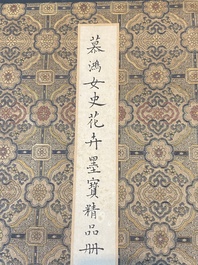 慕鴻女史花卉墨寶精品册